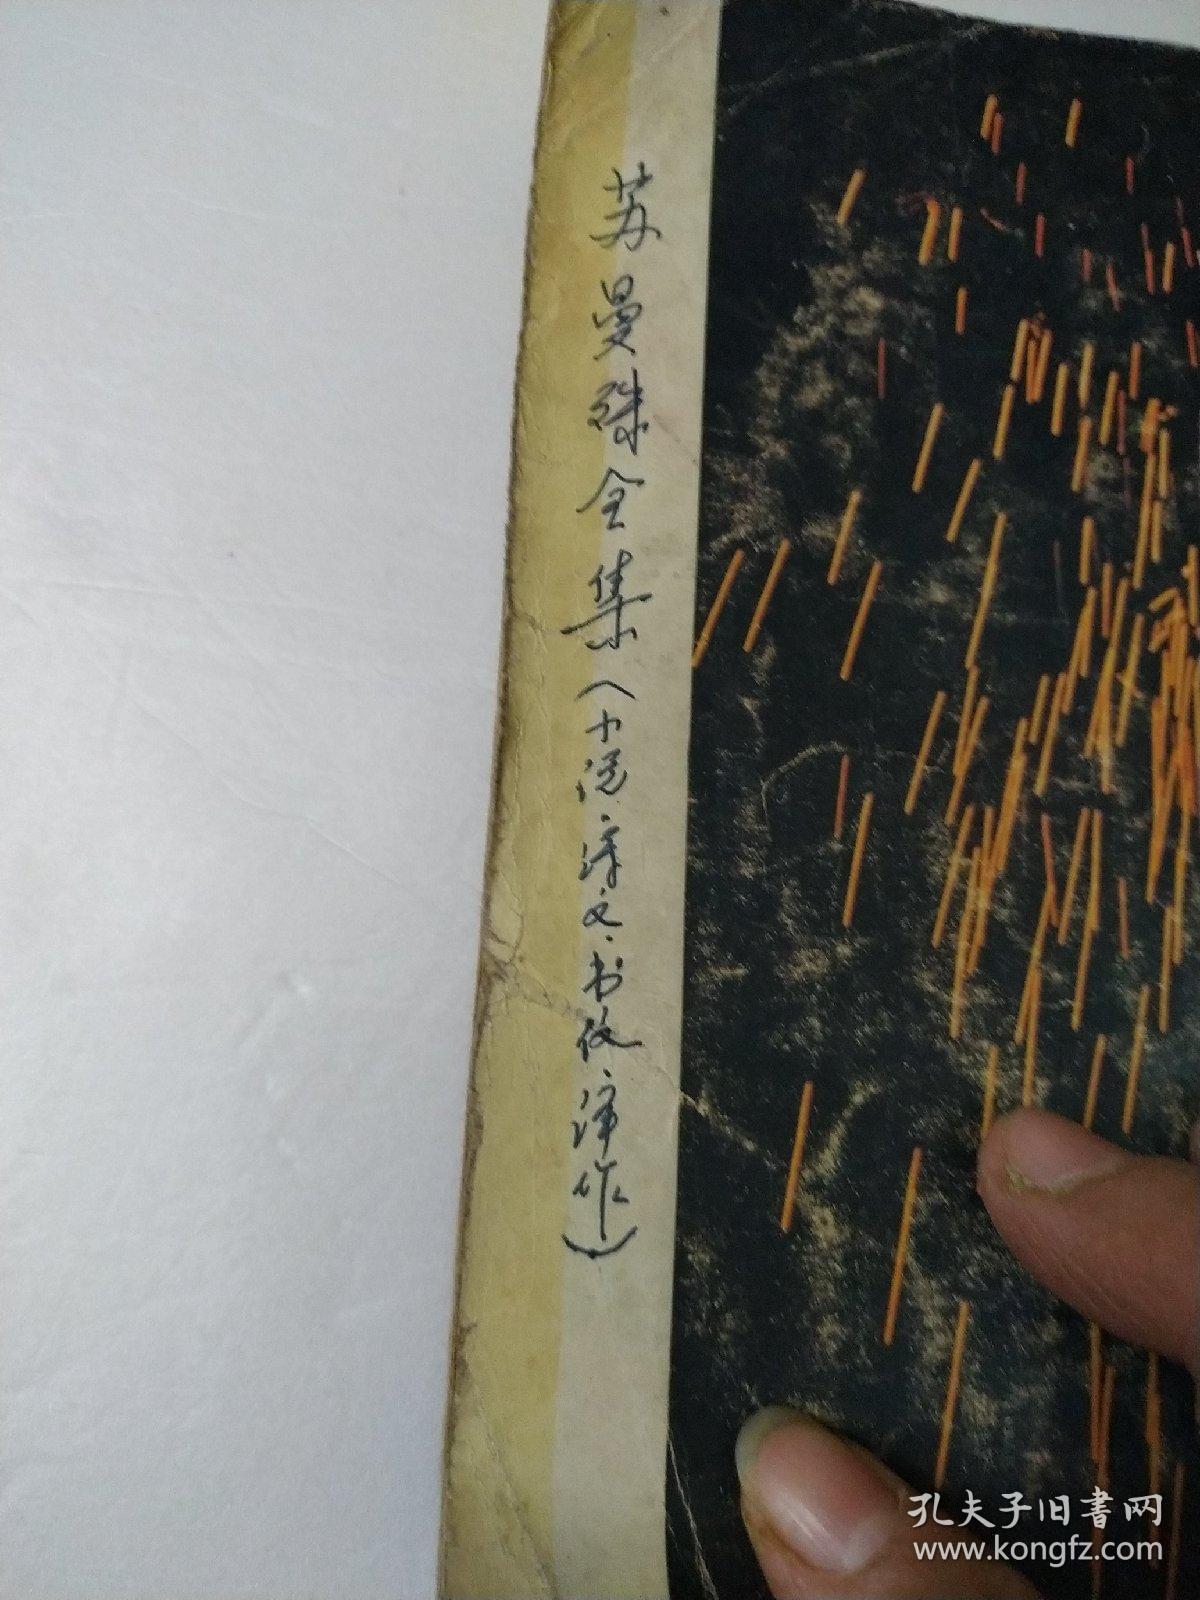 苏曼殊全集（小说·译文·书信·译作）
孔夫子旧書网
www.kongfz.com